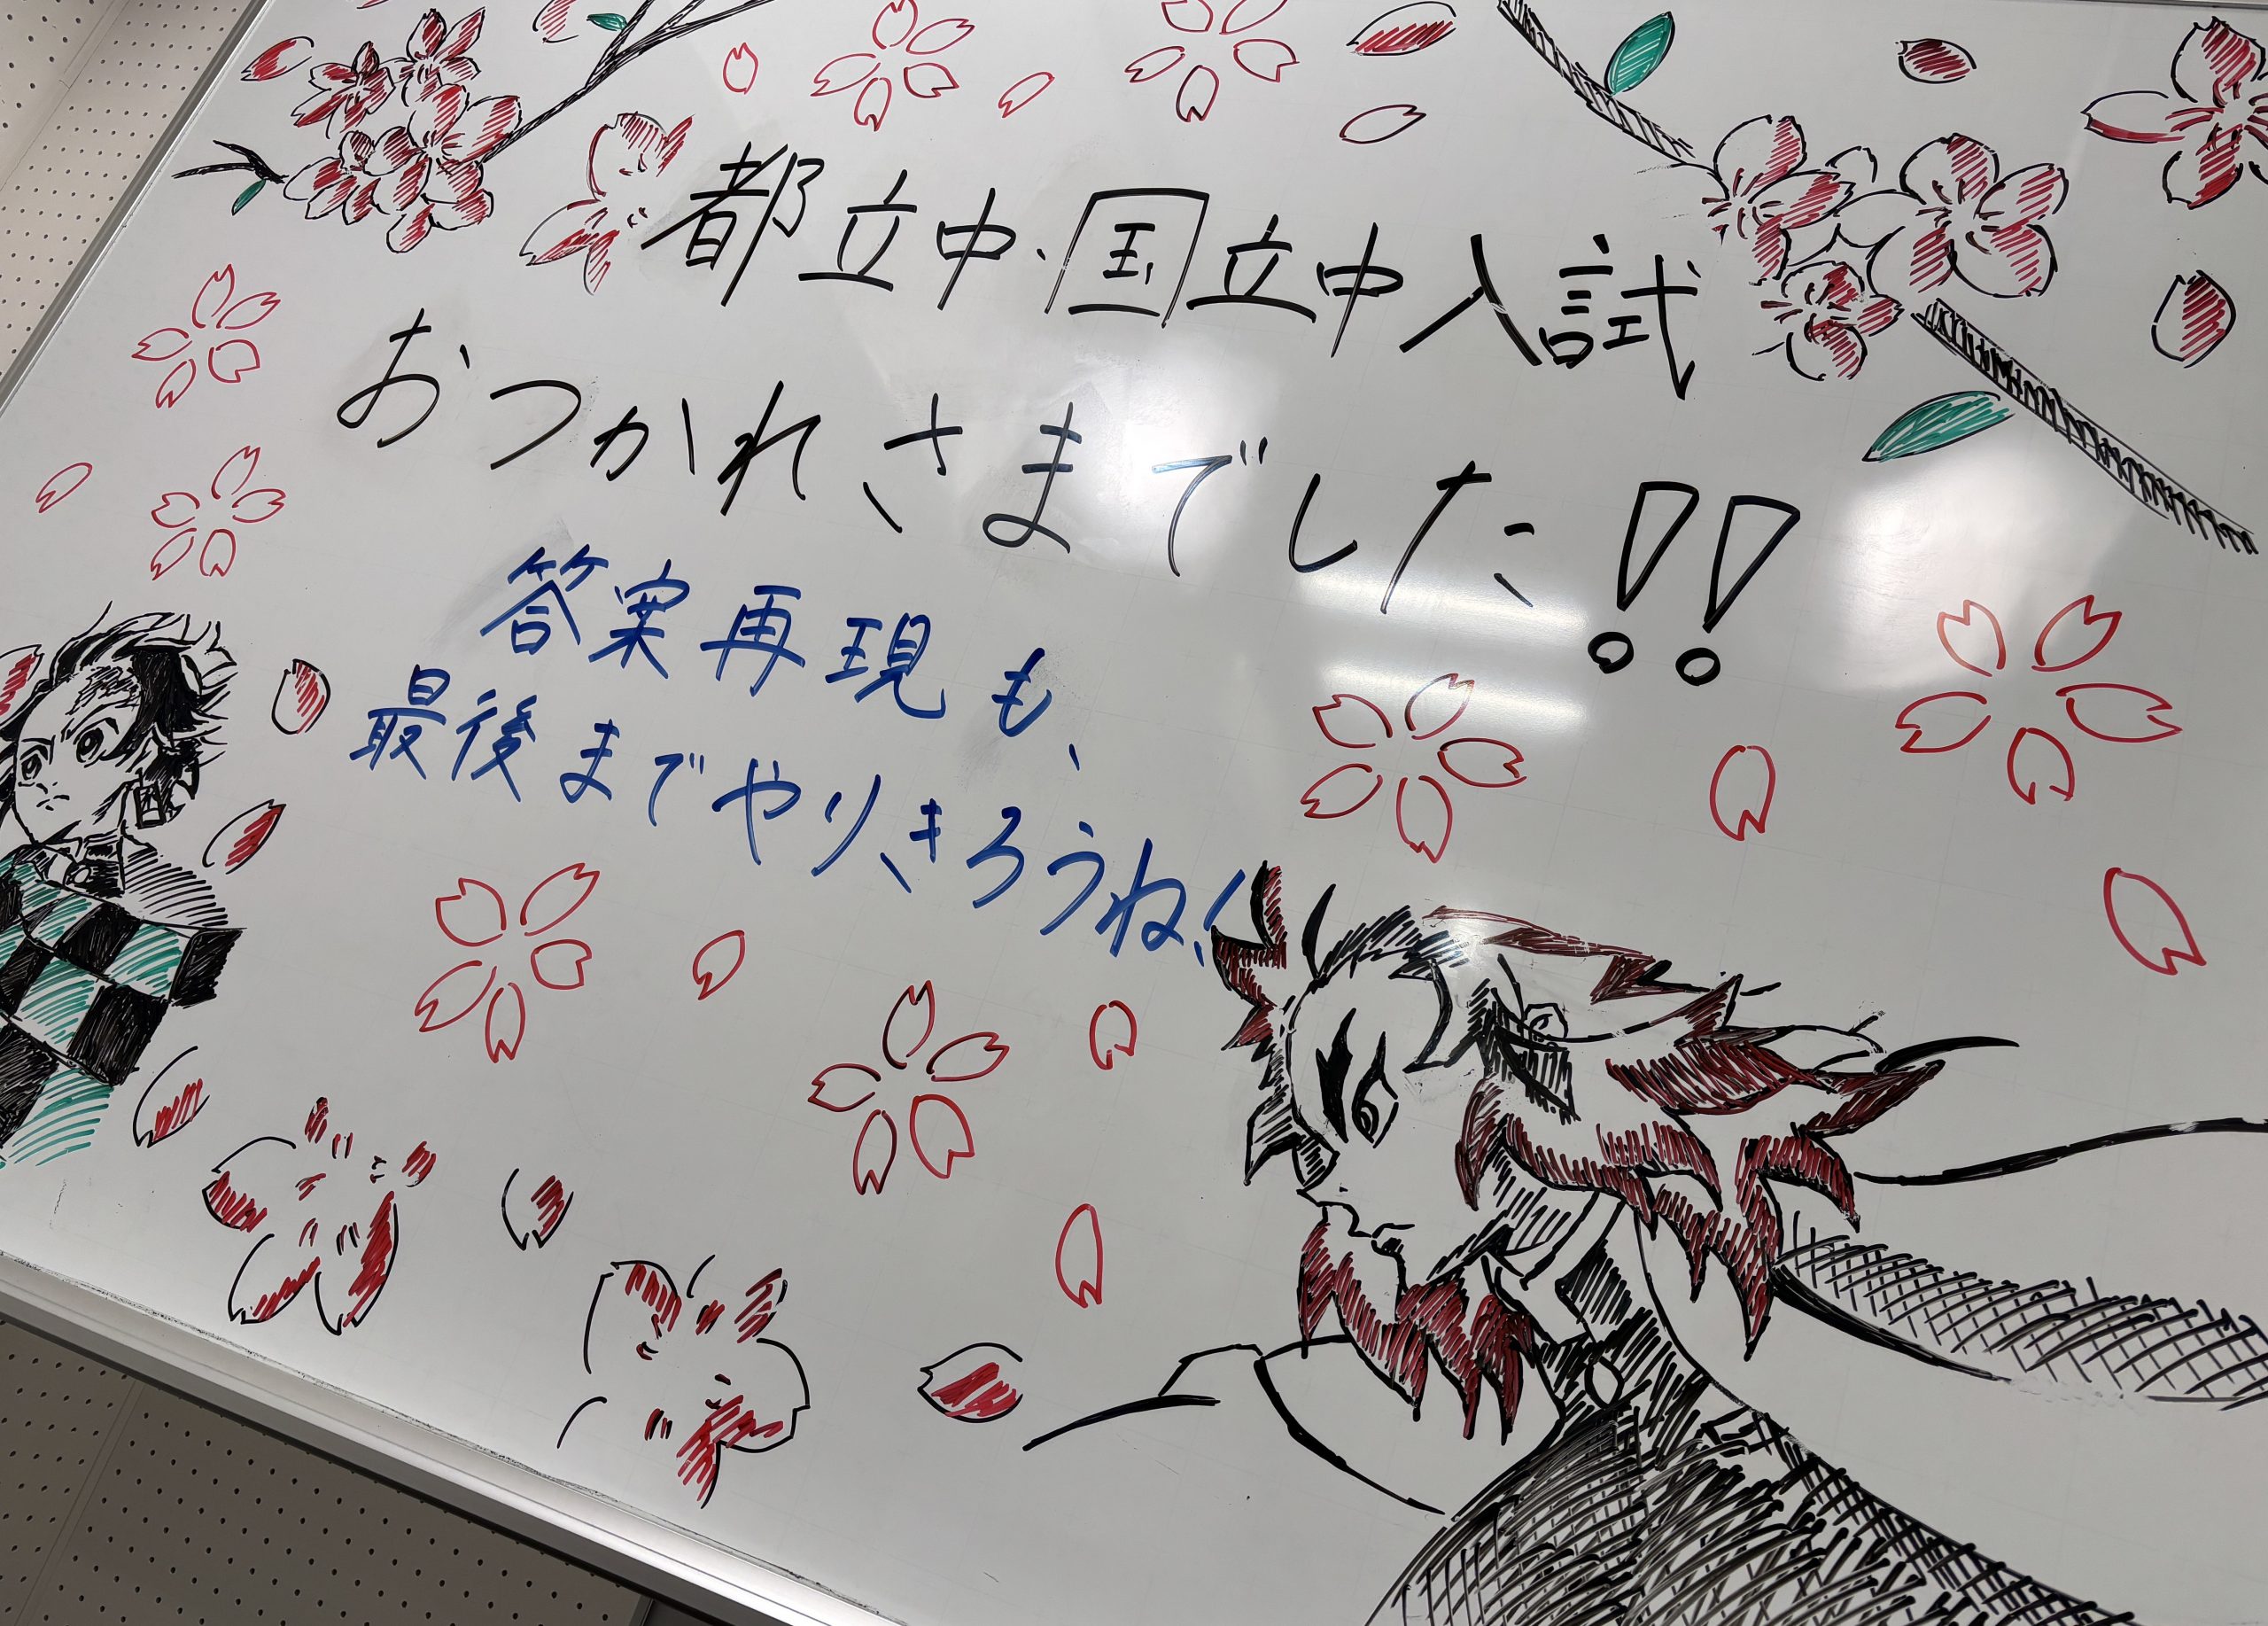 都立中・国立中入試
おつかれさまでした!!
答案再現も、
最後までやりきろうね!